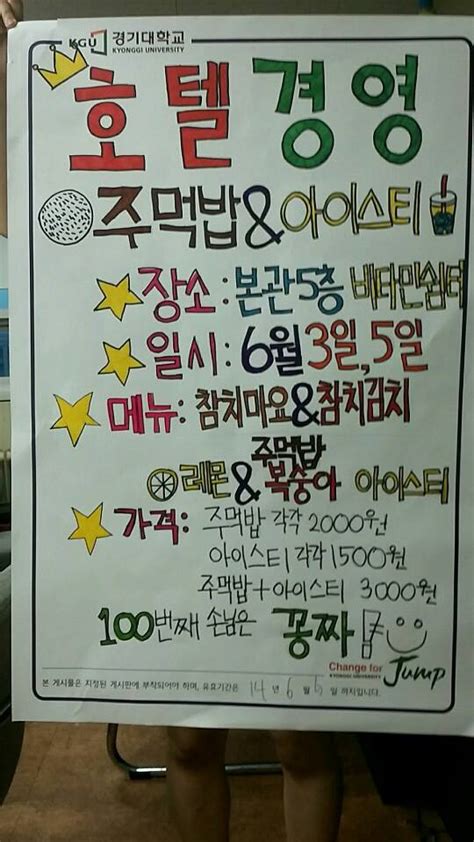 KGU 경기대학교
KYONGGI UNIVERSITY
호텔경영
주먹밥&아이스티
장소: 본관5층 비타민쉼터
일시: 6월 3일, 5일
메뉴: 참치마요&참치김치
주먹밥
레몬&복숭아 아이스티
가격: 주먹밥 각각 2000원
아이스티 각각 1500원
주먹밥+아이스티 3000원
100번째 손님은 꽁짜
Change for
KYONGGI UNIVERSITY
Jump
본 게시물은 지정된 게시판에 부착되어야 하며, 유효기간은 14년 6월 5일 까지입니다.